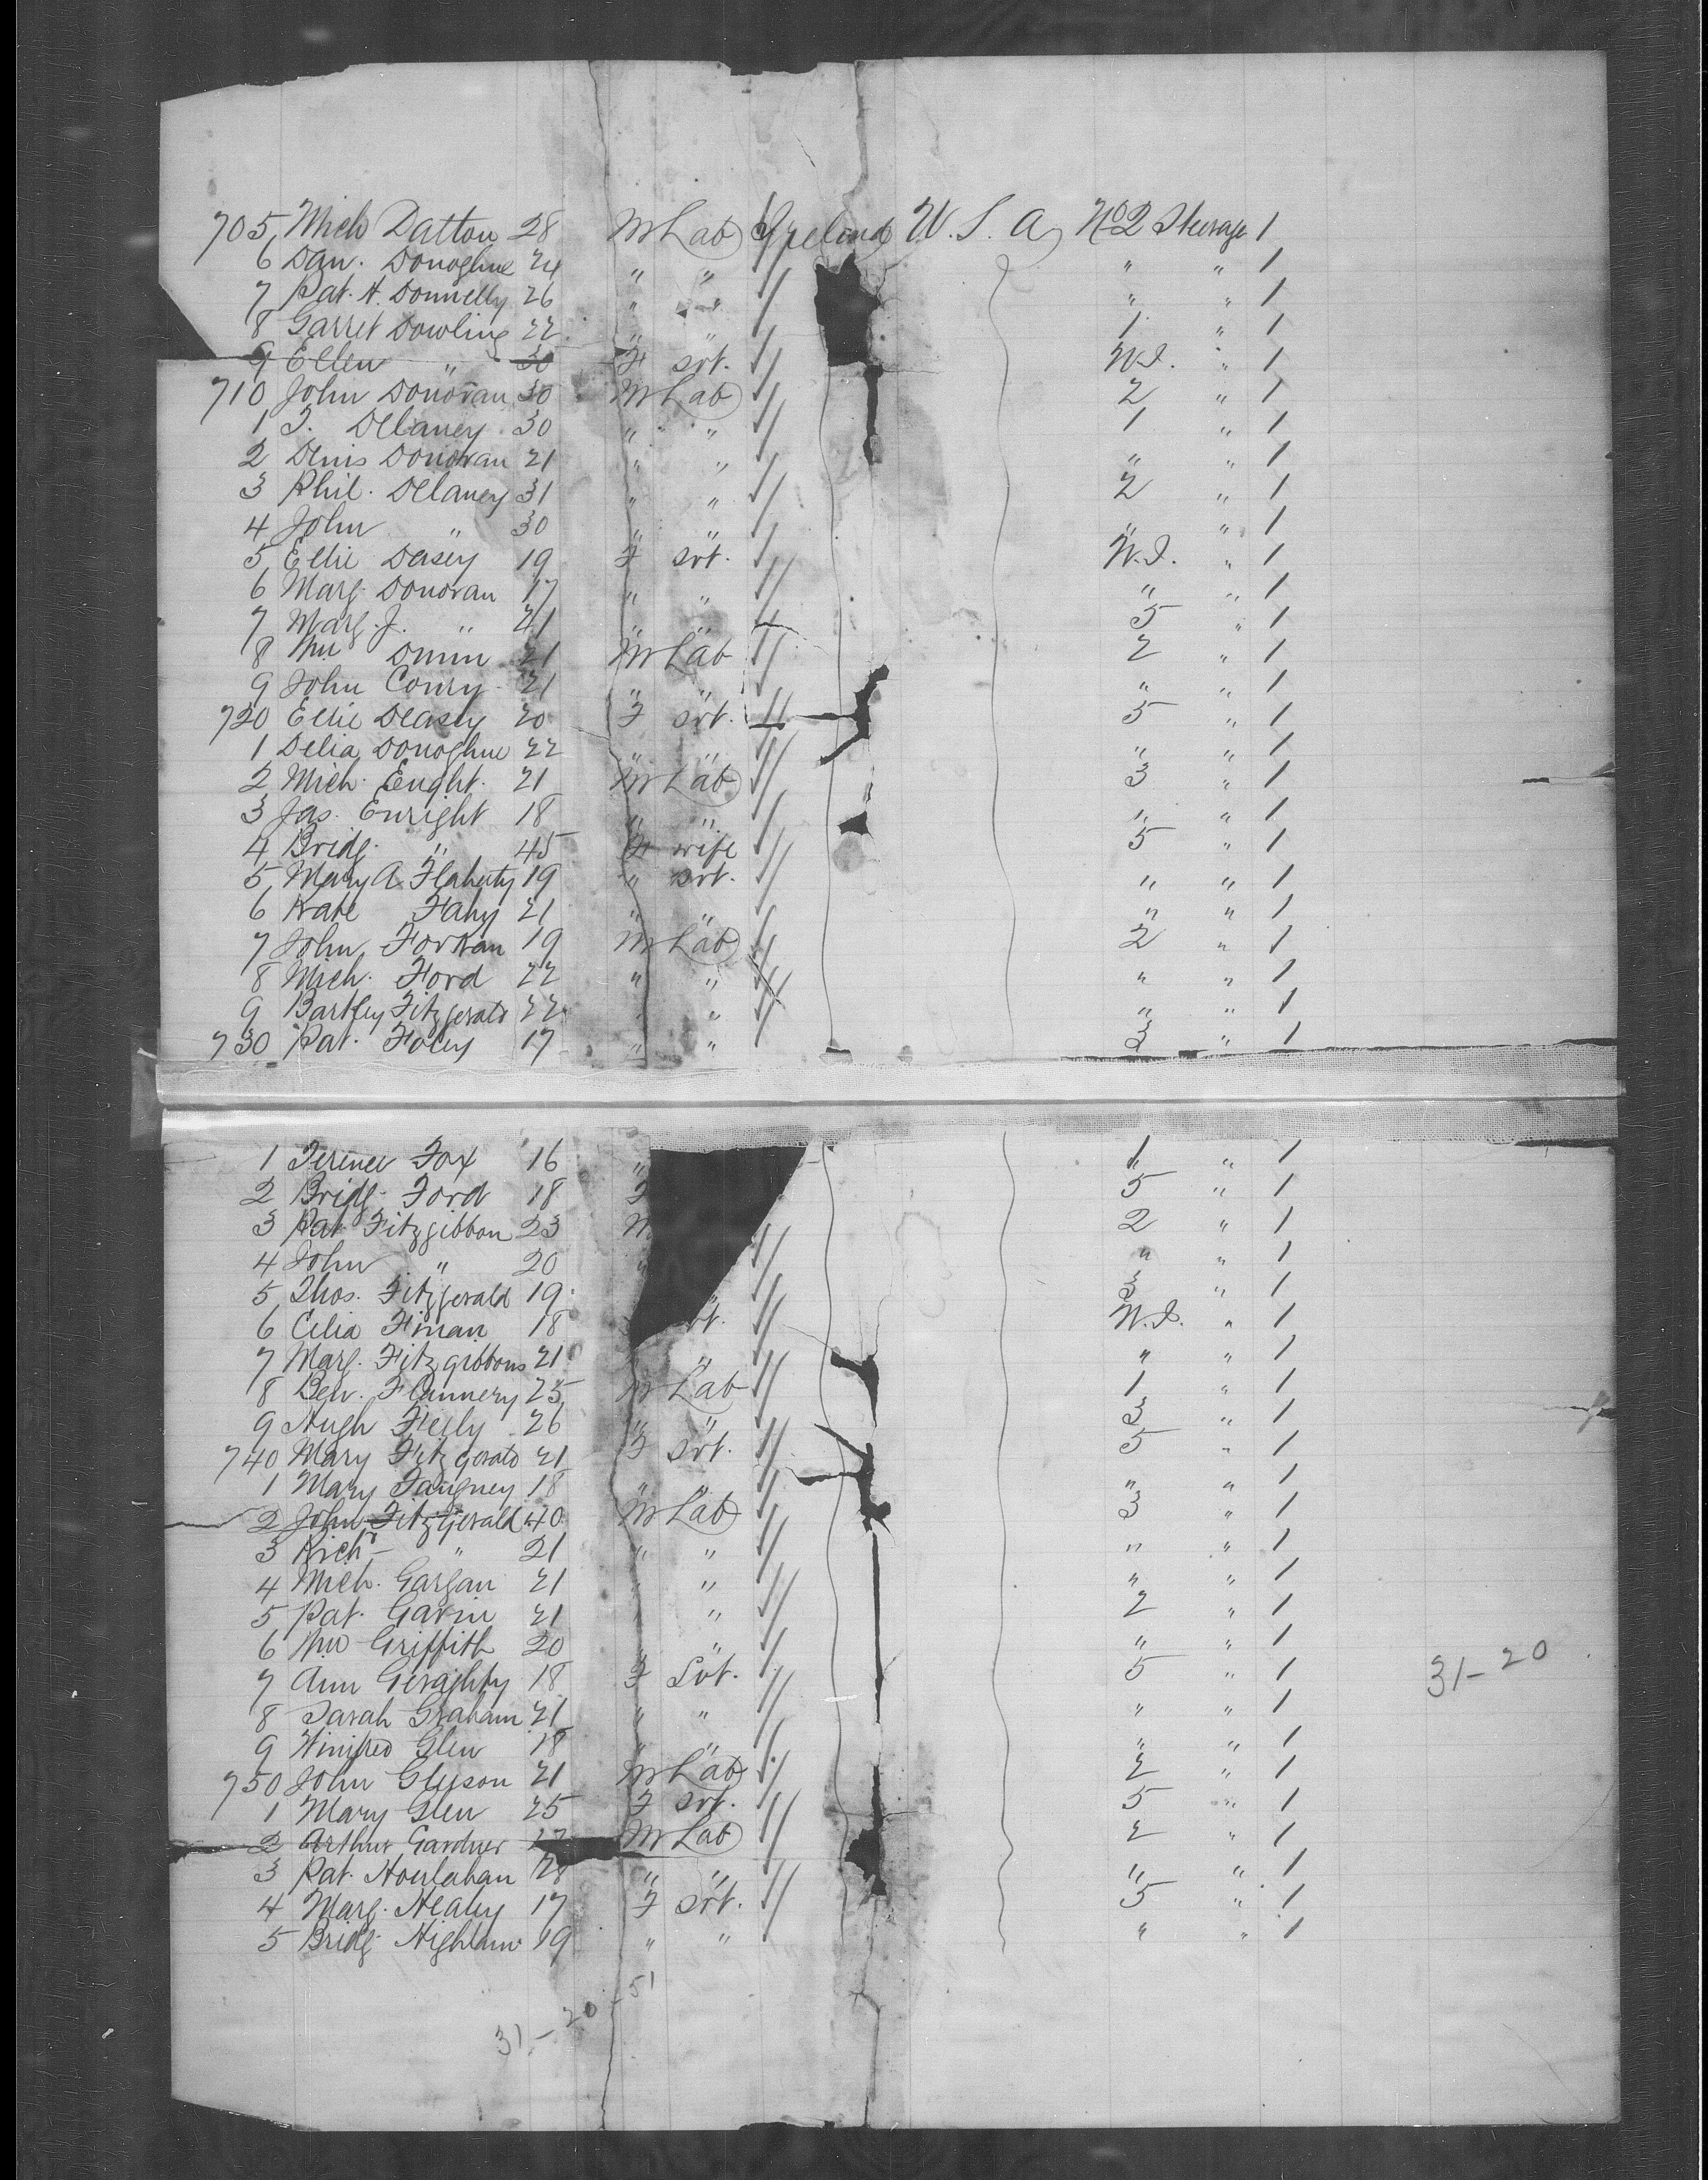 705 Mich Datton 28 M Lab Ireland U.S.A No 2 Steerage 1
6 Dan. Donoghue 24 " " " " 1
7 Pat. H. Donnelly 26 " " " " 1
8 Garret Dowling 22 " " 1 " 1
9 Ellen " 30 F svt. W.I. " 1
710 John Donovan 30 M Lab 2 " 1
1 T. Delaney 30 " " 1 " 1
2 Denis Donovan 21 " " " " 1
3 Phil. Delaney 31 " " 2 " 1
4 John " 30 " " " " 1
5 Ellie Deasey 19 F svt. W.I. " 1
6 Marg. Donovan 17 " " " " 1
7 Marg. J. " 21 " " 5 " 1
8 Wm Dunn 21 M Lab 2 " 1
9 John Conry 21 " " " " 1
720 Ellie Deasey 20 F svt. 5 " 1
1 Delia Donoghue 22 " " " " 1
2 Mich. Enght. 21 M Lab 3 " 1
3 Jas. Enright 18 " " " " 1
4 Bridg. " 45 F wife 5 " 1
5 Mary A Flaherty 19 " svt. " " 1
6 Kate Fahy 21 " " " " 1
7 John Forkan 19 M Lab 2 " 1
8 Mich. Ford 22 " " " " 1
9 Bartley Fitzgerald 22 " " " " 1
730 Pat. Foley 17 " " 3 " 1
1 Terence Fox 16 " 1 " 1
2 Bridg. Ford 18 F 5 " 1
3 Pat Fitzgibbon 23 M 2 " 1
4 John " 20 " " " 1
5 Thos. Fitzgerald 19 3 " 1
6 Celia Finan 18 W.I. " 1
7 Marg. Fitzgibbons 21 " " " 1
8 Ben. Flannery 25 M Lab 1 " 1
9 Hugh Feely 26 " " 3 " 1
740 Mary Fitzgerald 21 F svt. 5 " 1
1 Mary Fangney 18 " " " " 1
2 John Fitzgerald 40 M Lab 3 " 1
3 Richd " 21 " " " " 1
4 Mich. Gargan 21 " " " " 1
5 Pat. Gavin 21 " " 2 " 1
6 Wm Griffith 20 " " " " 1
7 Ann Geraghty 18 F Svt. 5 " 1 31-20
8 Sarah Graham 21 " " " " 1
9 Winifred Glen 18 " " " " 1
750 John Gleeson 21 M Lab 2 " 1
1 Mary Glen 25 F svt. 5 " 1
2 Arthur Gardner 17 M Lab 2 " 1
3 Pat. Hourlahan 28 " " " " 1
4 Marg. Healey 17 F svt. 5 " 1
5 Bridg. Highlam 19 " " " " 1
31-20-51